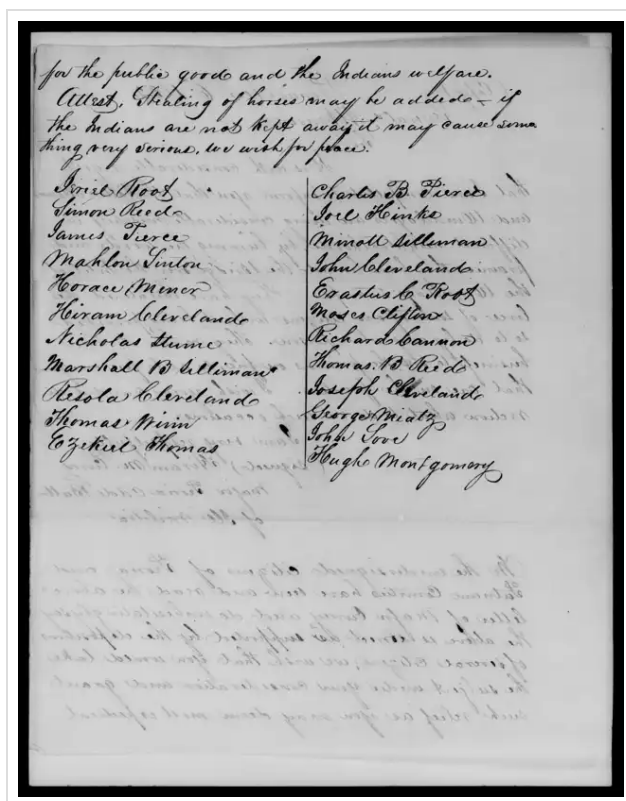 for the public good and the Indians welfare.
Attest, Stealing of horses may be added – if
the Indians are not kept away it may cause some
thing very serious, we wish for peace.
Isriel Root
Simon Reed
James Pierce
Mahlon Linton
Horace Miner
Hiram Cleveland
Nicholas Hume
Marshall B Silliman
Resola Cleveland
Thomas Winn
Ezekiel Thomas
Charles B Pierce
Joel Hinks
Minott Silliman
John Cleveland
Erastus C Root
Moses Clifton
Richard Cannon
Thomas. B Reed
Joseph Cleveland
George Miatz
John Love
Hugh Montgomery